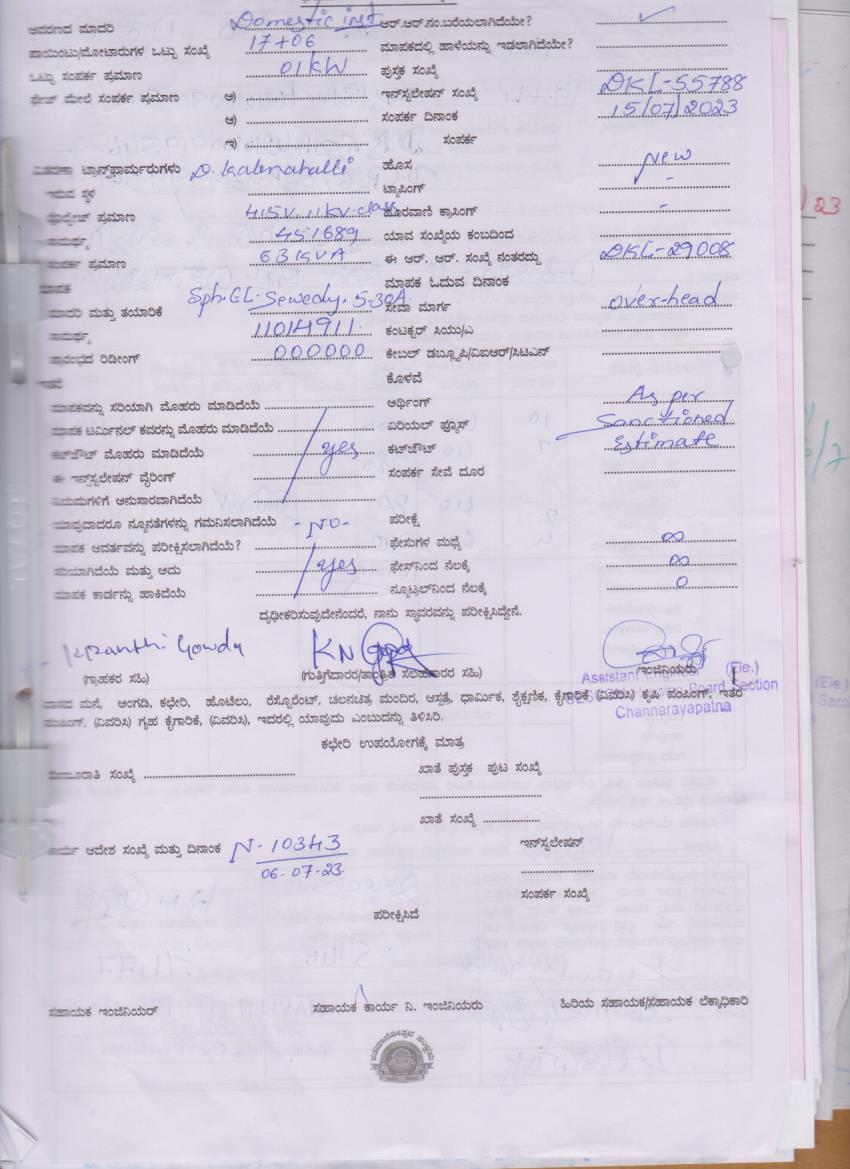 ಆವರಣದ ಮಾದರಿ Domestic inst ಆರ್.ಆರ್.ನಂ.ಬರೆಯಲಾಗಿದೆಯೇ? ✓
ಪಾಯಿಂಟು/ಮೋಟಾರುಗಳ ಒಟ್ಟು ಸಂಖ್ಯೆ 17+06 ಮಾಪಕದಲ್ಲಿ ಹಾಳೆಯನ್ನು ಇಡಲಾಗಿದೆಯೇ?
ಒಟ್ಟು ಸಂಪರ್ಕ ಪ್ರಮಾಣ 01 KW ಪುಸ್ತಕ ಸಂಖ್ಯೆ
ಫೇಜ್ ಮೇಲೆ ಸಂಪರ್ಕ ಪ್ರಮಾಣ ಅ) ಇನ್‌ಸ್ಟಲೇಷನ್ ಸಂಖ್ಯೆ DKL-55788
ಆ) ಸಂಪರ್ಕ ದಿನಾಂಕ 15/07/2023
ಇ) ಸಂಪರ್ಕ
ವಿತರಣಾ ಟ್ರಾನ್ಸ್‌ಫಾರ್ಮರುಗಳು D. Kalenahalli ಹೊಸ New
ಇರುವ ಸ್ಥಳ ಟ್ಯಾಪಿಂಗ್ -
ವೋಲ್ಟೇಜ್ ಪ್ರಮಾಣ 415V 11KV-class ಹೊರವಾಣಿ ಕ್ರಾಸಿಂಗ್ -
ಸಾಮರ್ಥ್ಯ 451689 ಯಾವ ಸಂಖ್ಯೆಯ ಕಂಬದಿಂದ
ಸಂಪರ್ಕ ಪ್ರಮಾಣ 63 KVA ಈ ಆರ್. ಆರ್. ಸಂಖ್ಯೆ ನಂತರದ್ದು DKL-29008
ಮಾಪಕ ಮಾಪಕ ಓದುವ ದಿನಾಂಕ
ಮಾದರಿ ಮತ್ತು ತಯಾರಿಕೆ Sph. EL-Sewedy. 5-30A. ಸೇವಾ ಮಾರ್ಗ over-head
ಸಾಮರ್ಥ್ಯ 11014911. ಕಂಟಕ್ಟರ್ ಸಿಯು/ಎ
ಪ್ರಾರಂಭದ ರಿಡೀಂಗ್ 000000 ಕೇಬಲ್ ಡಬ್ಲ್ಯೂಪಿ/ವಿಐಆರ್/ಸಿಟಿಎನ್
ಕೊಳವೆ
ಮಾಪಕವನ್ನು ಸರಿಯಾಗಿ ಮೊಹರು ಮಾಡಿದೆಯೆ ಅರ್ಥಿಂಗ್ As per
ಮಾಪಕ ಟರ್ಮಿನಲ್ ಕವರನ್ನು ಮೊಹರು ಮಾಡಿದೆಯೆ ಏರಿಯಲ್ ಫ್ಯೂಸ್ Sanctioned
ಕಟ್‌ಔಟ್ ಮೊಹರು ಮಾಡಿದೆಯೆ yes ಕಟ್‌ಔಟ್ Estimate
ಈ ಇನ್‌ಸ್ಟಲೇಷನ್ ವೈರಿಂಗ್ ಸಂಪರ್ಕ ಸೇವೆ ದೂರ
ನಿಯಮಗಳಿಗೆ ಅನುಸಾರವಾಗಿದೆಯೆ
ಯಾವುದಾದರೂ ನ್ಯೂನತೆಗಳನ್ನು ಗಮನಿಸಲಾಗಿದೆಯೆ - No - ಪರೀಕ್ಷೆ
ಮಾಪಕ ಆವರ್ತವನ್ನು ಪರೀಕ್ಷಿಸಲಾಗಿದೆಯೆ? ಫೇಸುಗಳ ಮಧ್ಯೆ ∞
ಸರಿಯಾಗಿದೆಯೆ ಮತ್ತು ಅದು yes ಫೇಸ್‌ನಿಂದ ನೆಲಕ್ಕೆ ∞
ಮಾಪಕ ಕಾರ್ಡನ್ನು ಹಾಕಿದೆಯೆ ನ್ಯೂಟ್ರಲ್‌ನಿಂದ ನೆಲಕ್ಕೆ 0
ದೃಢೀಕರಿಸುವುದೇನೆಂದರೆ, ನಾನು ಸ್ಥಾವರವನ್ನು ಪರೀಕ್ಷಿಸಿದ್ದೇನೆ.
Kranthi Gowda
(ಗ್ರಾಹಕರ ಸಹಿ) (ಗುತ್ತಿಗೆದಾರರ/ತಾಂತ್ರಿಕ ಸಲಹಾಗಾರರ ಸಹಿ) ಇಂಜಿನಿಯರು
Assistant Engineer (Ele.)
Board Section
Channarayapatna
ವಾಸದ ಮನೆ, ಅಂಗಡಿ, ಕಛೇರಿ, ಹೊಟೆಲು, ರೆಸ್ಟೊರೆಂಟ್, ಚಲನಚಿತ್ರ ಮಂದಿರ, ಆಸ್ಪತ್ರೆ, ಧಾರ್ಮಿಕ, ಶೈಕ್ಷಣಿಕ, ಕೈಗಾರಿಕೆ (ವಿವರಿಸಿ) ಕೃಷಿ ಪಂಪಿಂಗ್, ಇತರೆ
ಪಂಪಿಂಗ್, (ವಿವರಿಸಿ) ಗೃಹ ಕೈಗಾರಿಕೆ, (ವಿವರಿಸಿ), ಇದರಲ್ಲಿ ಯಾವುದು ಎಂಬುದನ್ನು ತಿಳಿಸಿರಿ.
ಕಛೇರಿ ಉಪಯೋಗಕ್ಕೆ ಮಾತ್ರ
ಸಂಖ್ಯೆ ಖಾತೆ ಪುಸ್ತಕ ಪುಟ ಸಂಖ್ಯೆ
ಖಾತೆ ಸಂಖ್ಯೆ
ಕಾರ್ಯ ಆದೇಶ ಸಂಖ್ಯೆ ಮತ್ತು ದಿನಾಂಕ N-10343 ಇನ್‌ಸ್ಟಲೇಷನ್
06-07-23
ಸಂಪರ್ಕ ಸಂಖ್ಯೆ
ಪರೀಕ್ಷಿಸಿದೆ
ಸಹಾಯಕ ಇಂಜಿನಿಯರ್ ಸಹಾಯಕ ಕಾರ್ಯ ನಿ. ಇಂಜಿನಿಯರು ಹಿರಿಯ ಸಹಾಯಕ/ಸಹಾಯಕ ಲೆಕ್ಕಾಧಿಕಾರಿ